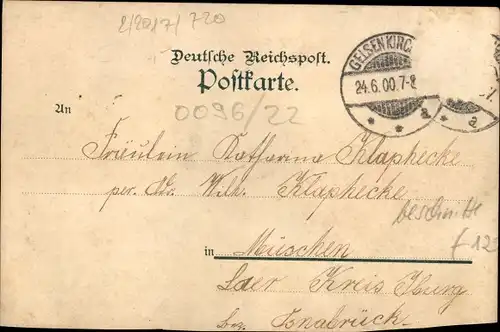 2/2017/720
Deutsche Reichspost.
Postkarte.
GELSENKIRC
24.6.00.7-8
a
a
0096/22
An
Fräulein Katharina Klaphecke
per. Ad. Wilh. Klaphecke
beschnitt
in Müschen
f 12
Laer Kreis Iburg
bez. Osnabrück